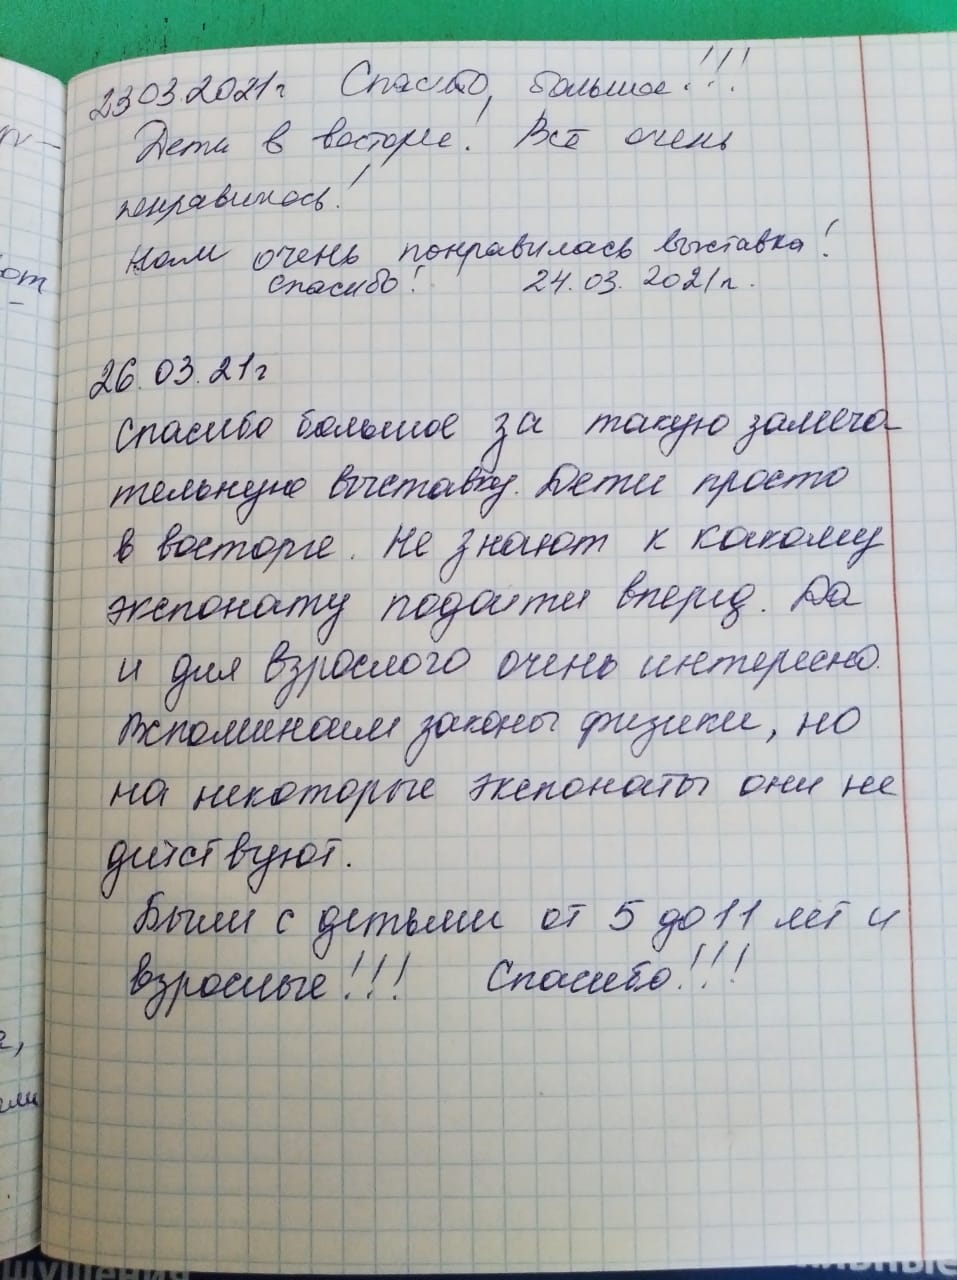 23.03.2021г Спасибо, большое!!!
Дети в восторге! Всё очень
понравилось!
Нам очень понравилась выставка!
Спасибо! 24.03.2021г.
26.03.21г
Спасибо большое за такую замеча-
тельную выставку. Дети просто
в восторге. Не знают к какому
экспонату подойти вперед. Да
и для взрослого очень интересно.
Вспоминаем законы физики, но
на некоторые экспонаты они не
дитствуют.
Были с детьми от 5 до 11 лет и
взрослые!!! Спасибо!!!
от